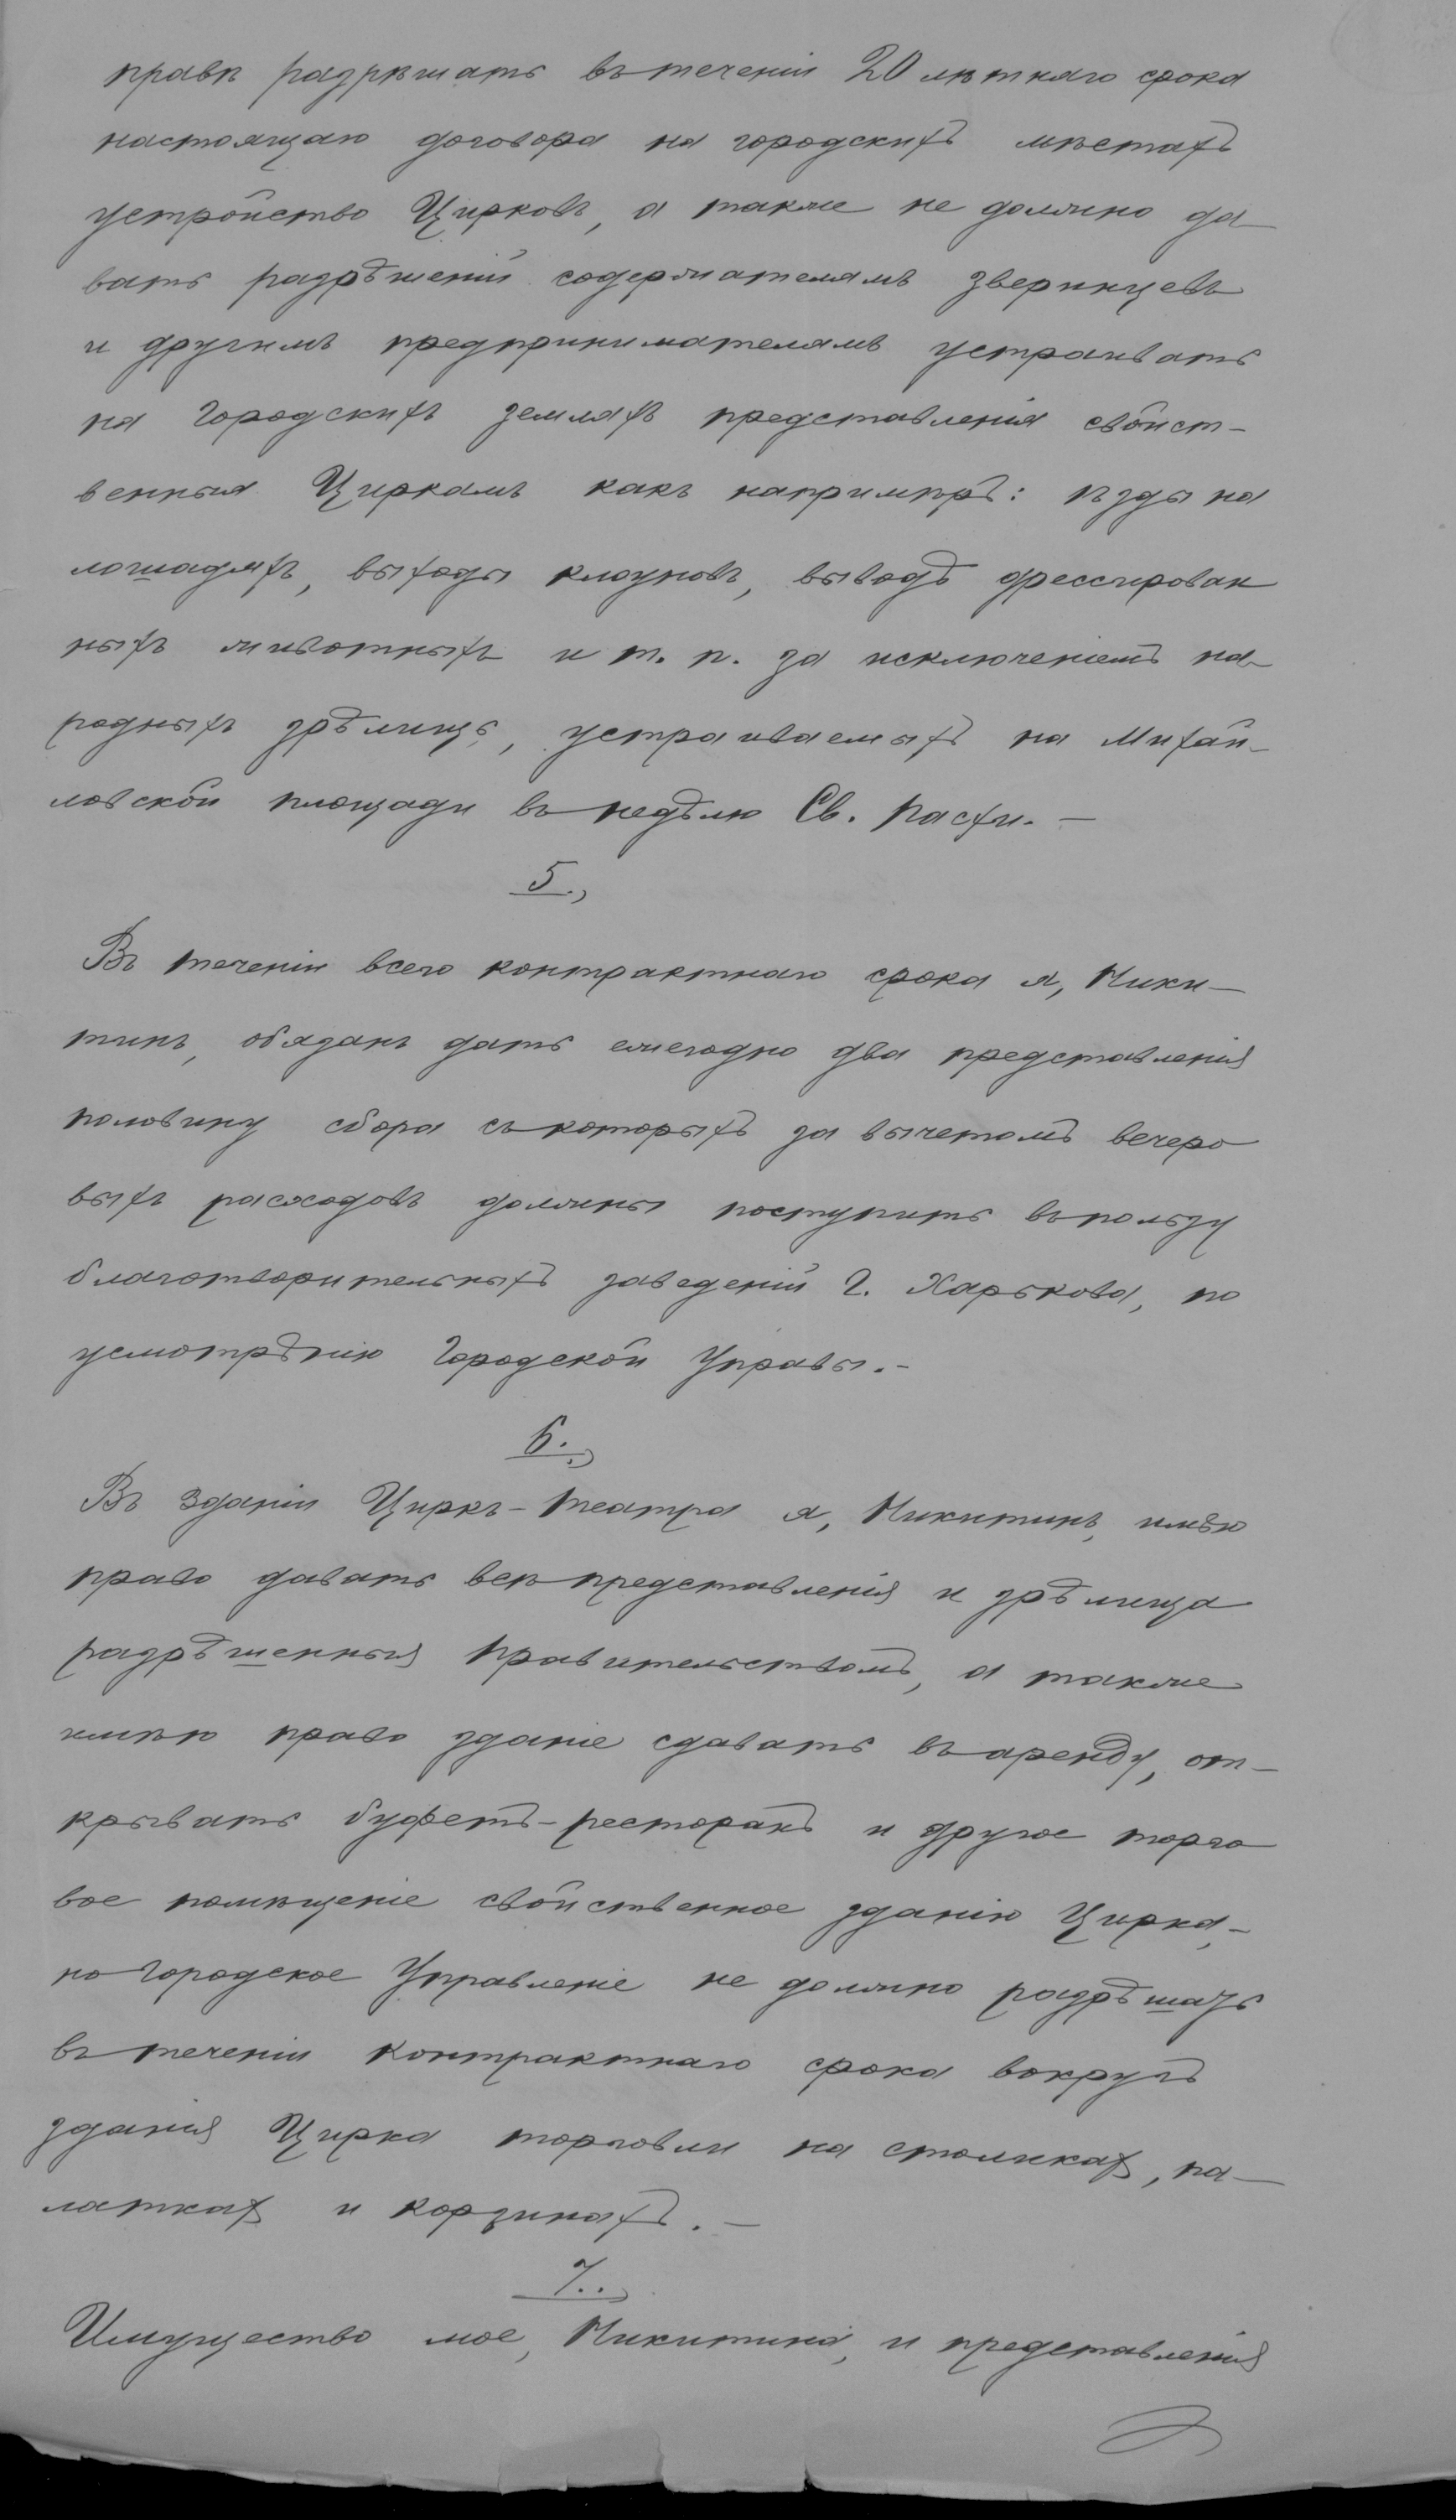 правѣ разрѣшать въ теченіи 20 лѣтняго срока
настоящаго договора на городскихъ мѣстахъ
устройство Цирковъ, а также не должно да-
вать разрѣшеній содержателямъ звѣринцевъ
и другимъ предпринимателямъ устраивать
на Городскихъ земляхъ представленія свойст-
венныя Циркамъ какъ напримѣръ: ѣзды на
лошадяхъ, выходы клоуновъ, выводъ дрессирован
ныхъ животныхъ и т. п. за исключеніемъ на-
родныхъ зрѣлищъ, устраиваемыхъ на Михай-
ловской площади въ недѣлю Св. Пасхи. —
5.,
Въ теченіи всего контрактнаго срока я, Ники-
тинъ, обязанъ дать ежегодно два представленія
половину сбора съ которыхъ за вычетомъ вечеро
выхъ расходовъ должны поступить въ пользу
благотворительныхъ заведеній г. Харькова, по
усмотрѣнію Городской Управы. -
6.,
Въ зданіи Циркъ-Театра я, Никитинъ, имѣю
право давать всѣ представленія и зрѣлища
разрѣшенныя Правительствомъ, а также
имѣю право зданіе сдавать въ аренду, от-
крывать буфетъ-ресторанъ и другое торго
вое помѣщеніе свойственное зданію Цирка, -
но Городское Управленіе не должно разрѣшать
въ теченіи контрактнаго срока вокругъ
зданія Цирка торговли на столикахъ, па-
латкахъ и корзинахъ. —
7.,
Имущество мое, Никитина, и представленія